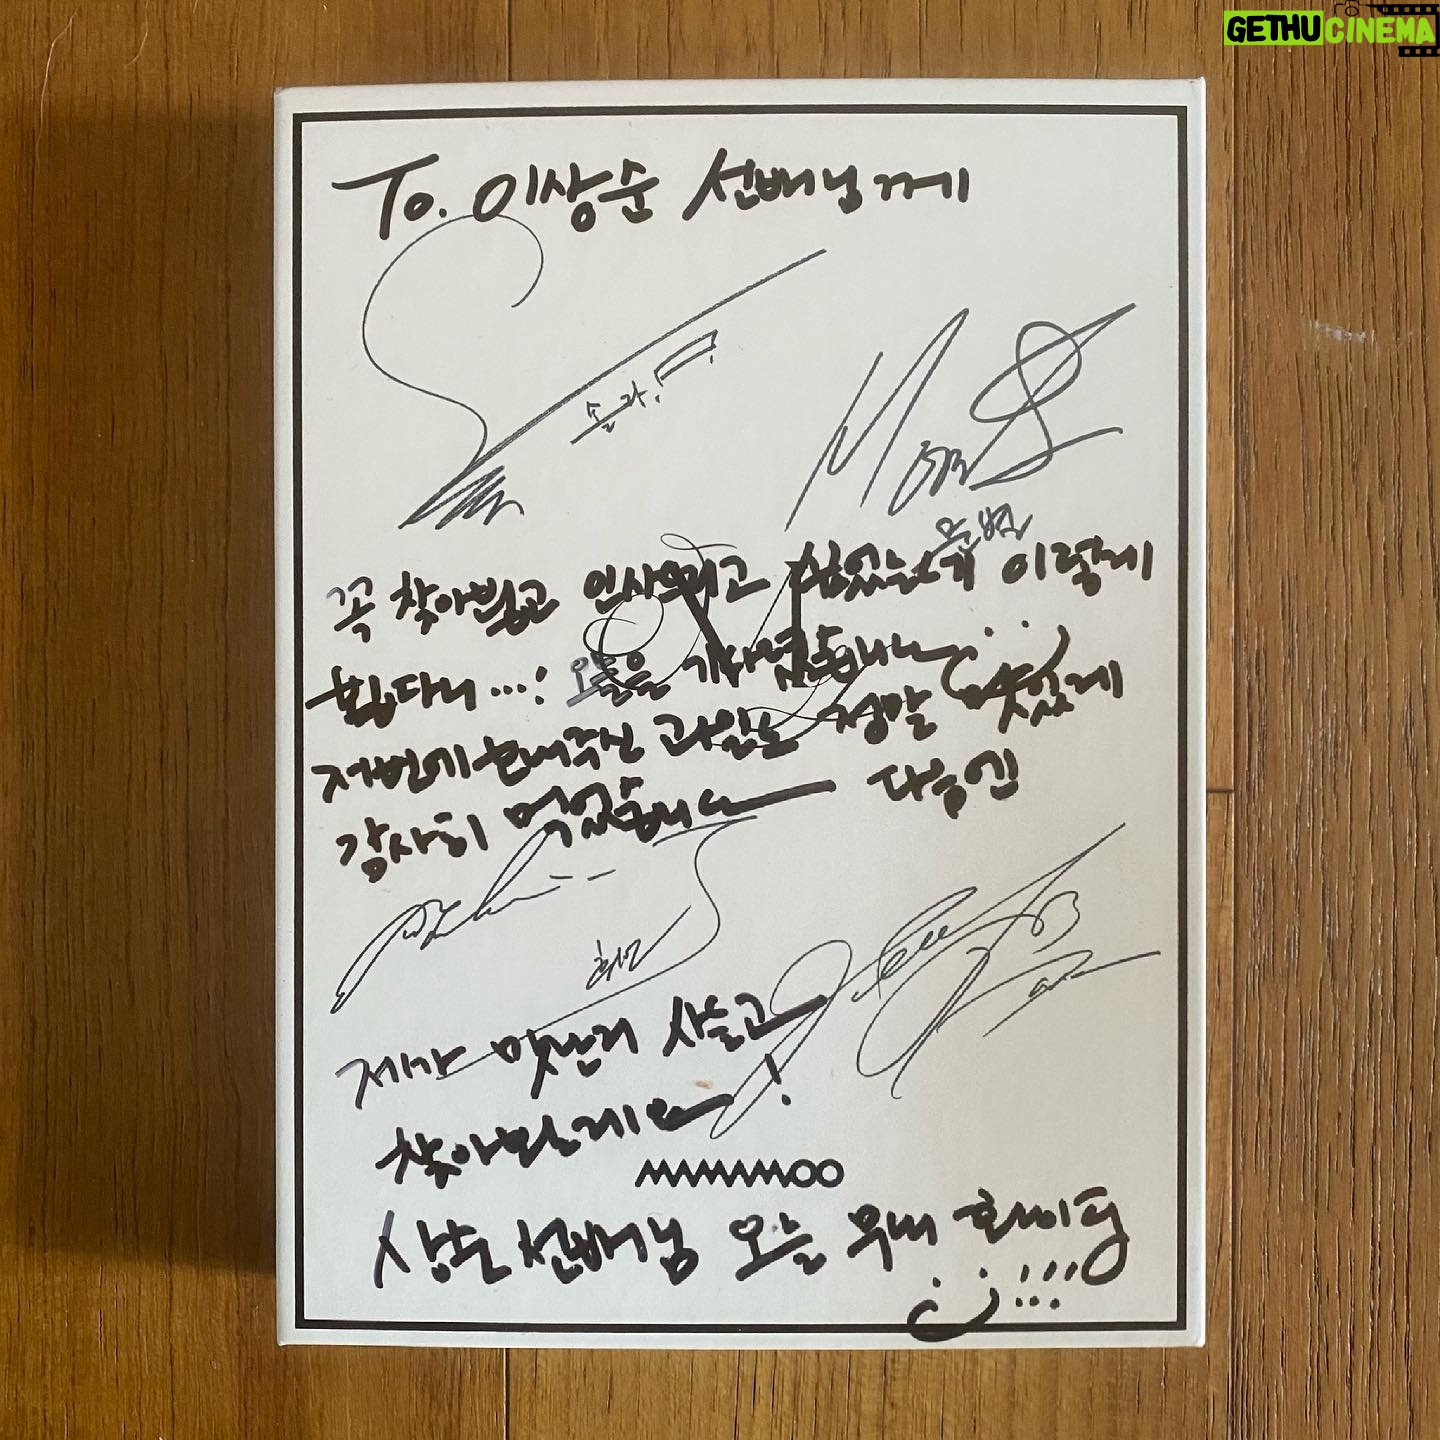 GETHUCINEMA
To. 이상순 선배님께
솔라!
Moon
문별
꼭 찾아뵙고 인사드리고 싶었는데 이렇게
뵙다니...! 오늘을 기다렸습니다..
저번에 보내주신 과일도 정말 맛있게
감사히 먹었습니다 다음엔
휘인
제가 맛난거 사들고
찾아뵐게요!
MAMAMOO
상순 선배님 오늘 무대 화이팅
!!!